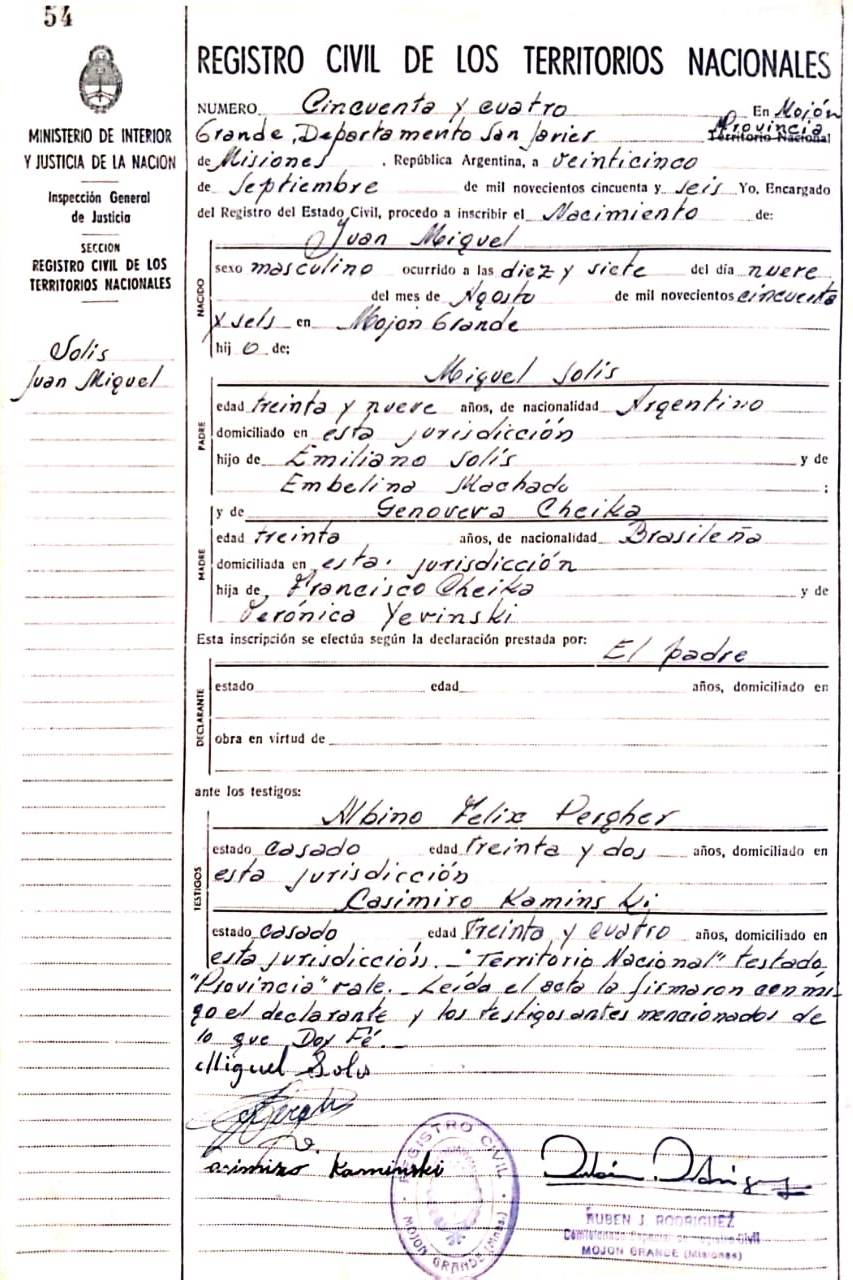 54
MINISTERIO DE INTERIOR
Y JUSTICIA DE LA NACION
Inspección General
de Justicia
SECCION
REGISTRO CIVIL DE LOS
TERRITORIOS NACIONALES
Solis
Juan Miguel
REGISTRO CIVIL DE LOS TERRITORIOS NACIONALES
NUMERO Cincuenta y cuatro En Mojón
Grande, Departamento San Javier Provincia Territorio Nacional
de Misiones , República Argentina, a veinticinco
de Septiembre de mil novecientos cincuenta y seis Yo, Encargado
del Registro del Estado Civil, procedo a inscribir el Nacimiento de:
Juan Miguel
NACIDO
sexo masculino ocurrido a las diez y siete del día nueve
del mes de Agosto de mil novecientos cincuenta
y seis en Mojon Grande
hij o de:
Miguel Solis
PADRE
edad treinta y nueve años, de nacionalidad Argentino
domiciliado en esta jurisdicción
hijo de Emiliano Solís y de
Embelina Machado ;
y de Genoveva Cheika
MADRE
edad treinta años, de nacionalidad Brasileña
domiciliada en esta jurisdicción
hija de Francisco Cheika y de
Verónica Yevinski
Esta inscripción se efectúa según la declaración prestada por: El padre
DECLARANTE
estado edad años, domiciliado en
obra en virtud de
ante los testigos:
Albino Felix Pergher
TESTIGOS
estado casado edad treinta y dos años, domiciliado en
esta jurisdicción
Casimiro Kaminski
estado casado edad treinta y cuatro años, domiciliado en
esta jurisdicción. - "Territorio Nacional" testado,
"Provincia" vale. - Leída el acta la firmaron conmi-
go el declarante y los testigos antes mencionados de
lo que Doy Fé. -
Miguel Solis
Kaminski
REGISTRO CIVIL
MOJON GRANDE (Mnes.)
RUBEN J. RODRIGUEZ
MOJON GRANDE (Misiones)